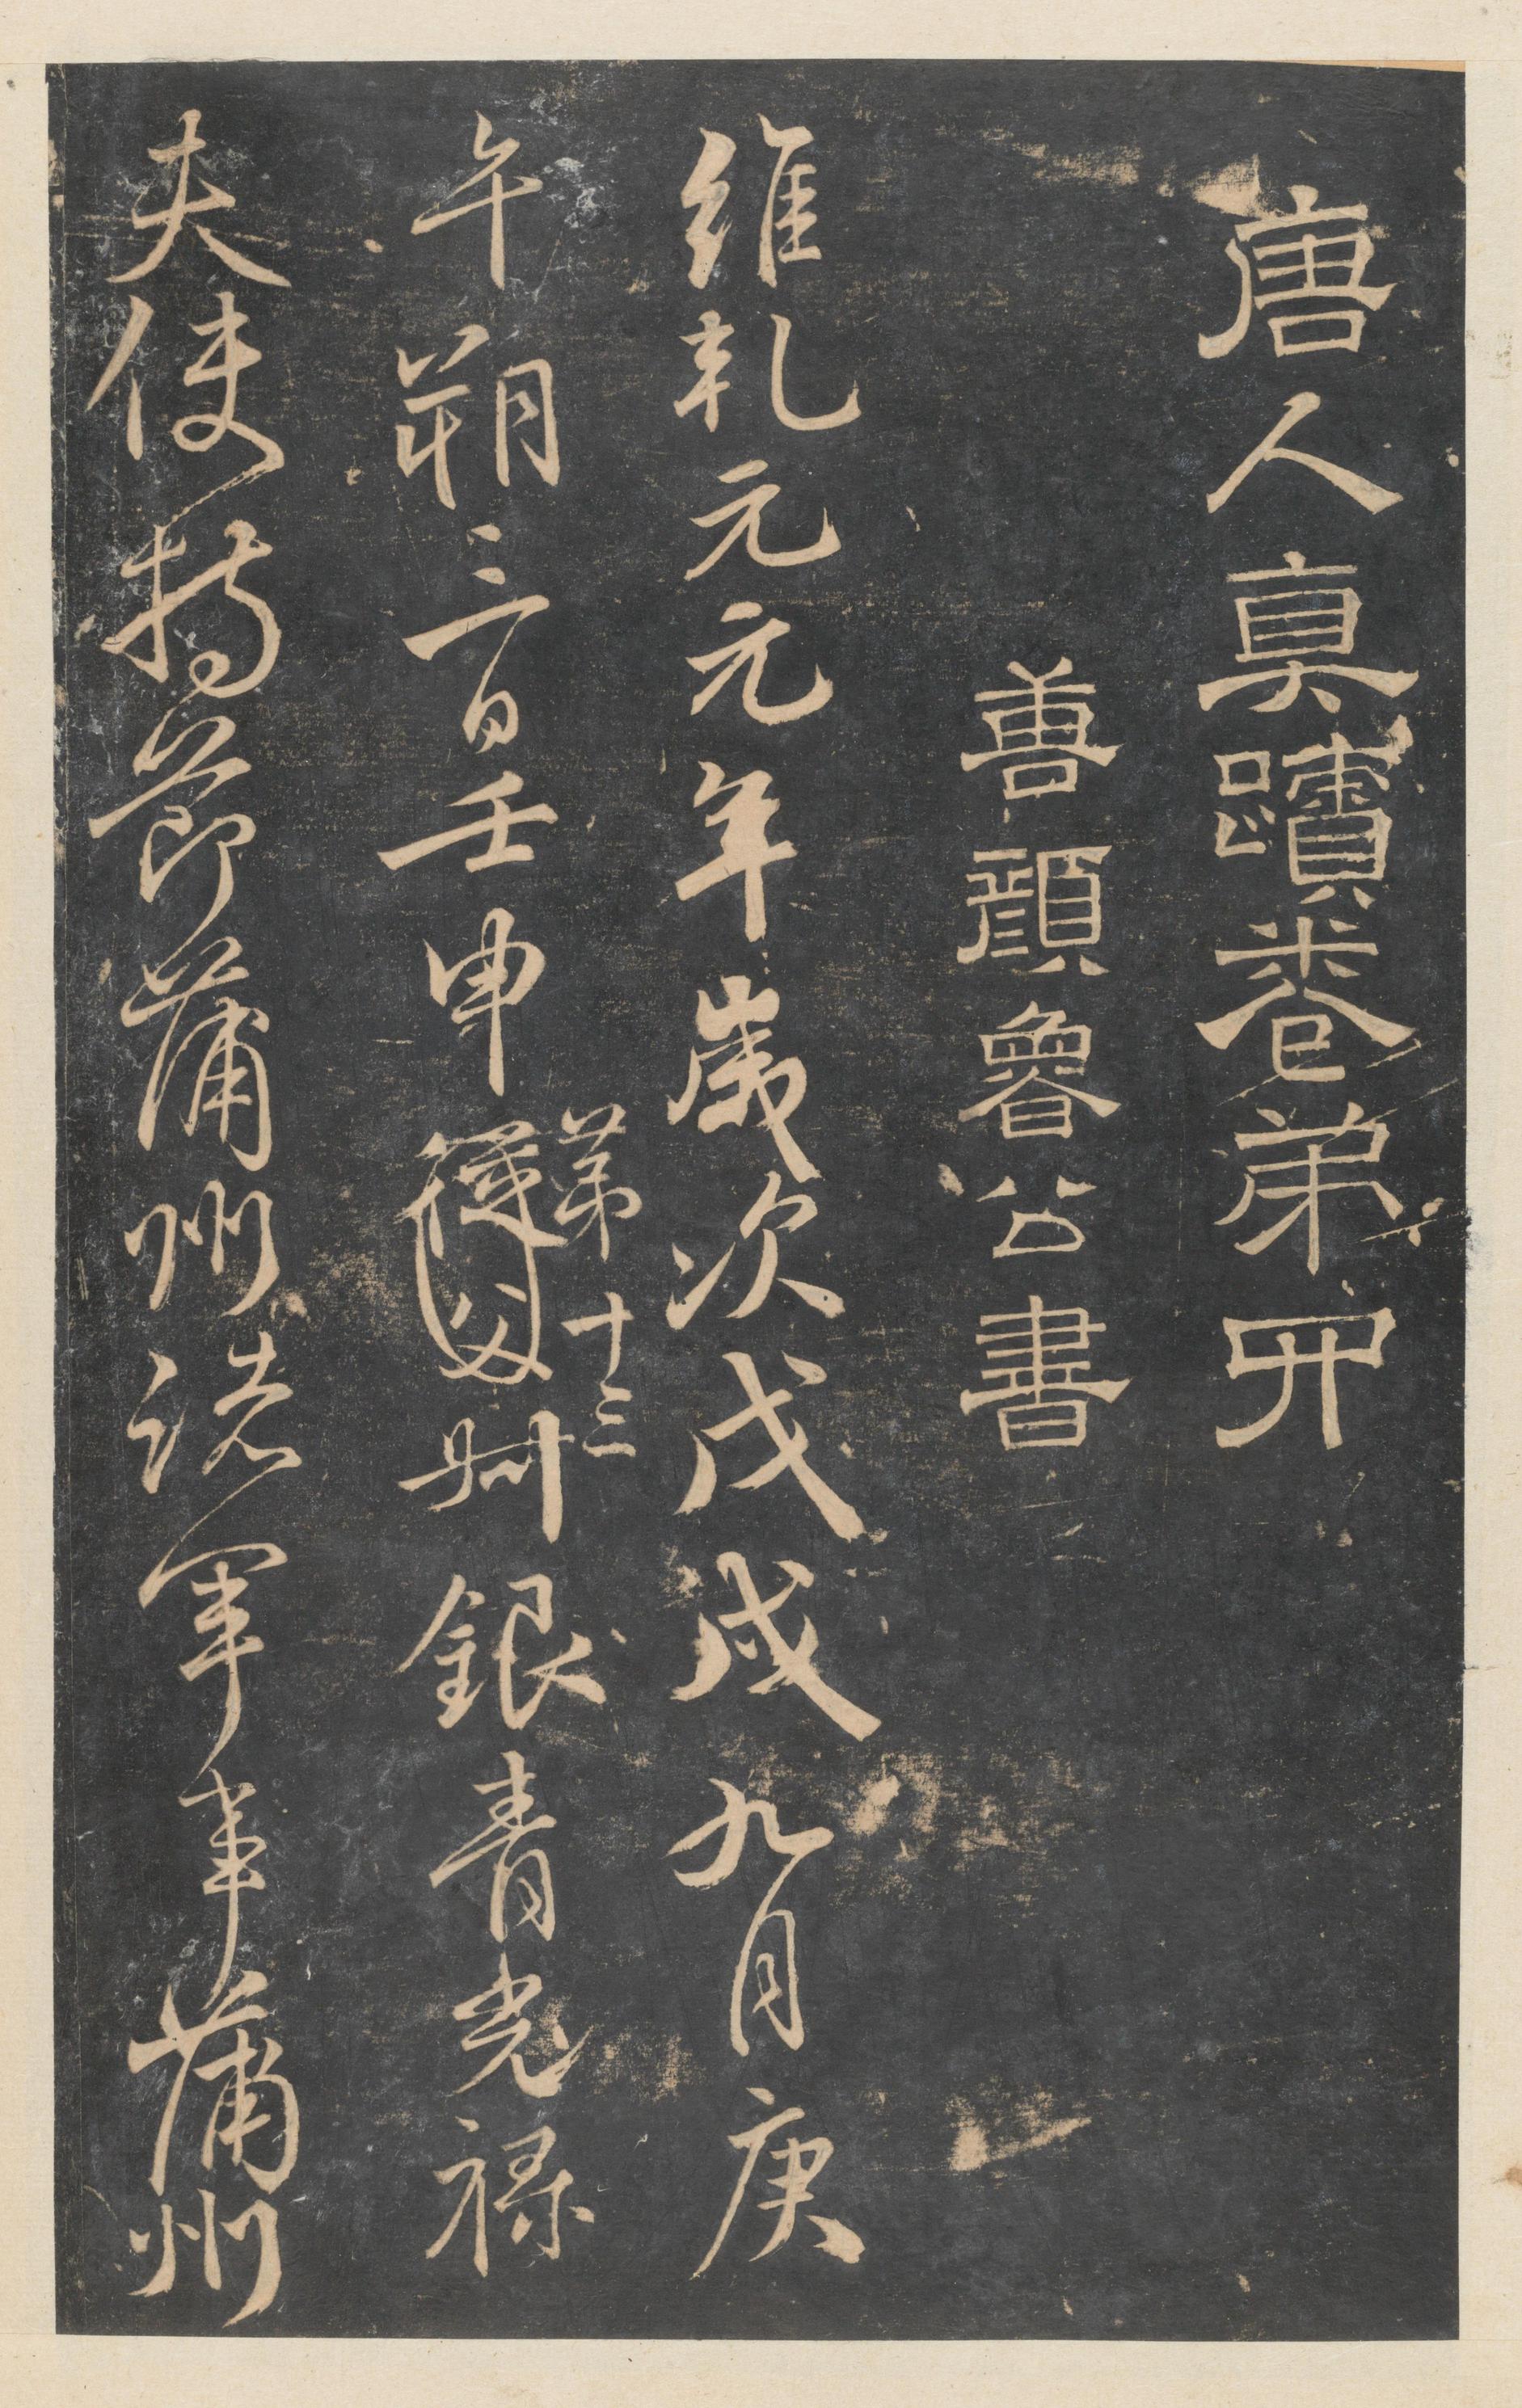 唐人真蹟卷弟四
唐顏魯公書
維乾元元年歲次戊戌九月庚
午朔三日壬申第十三從父叔銀青光祿
夫使持節蒲州諸軍事蒲州